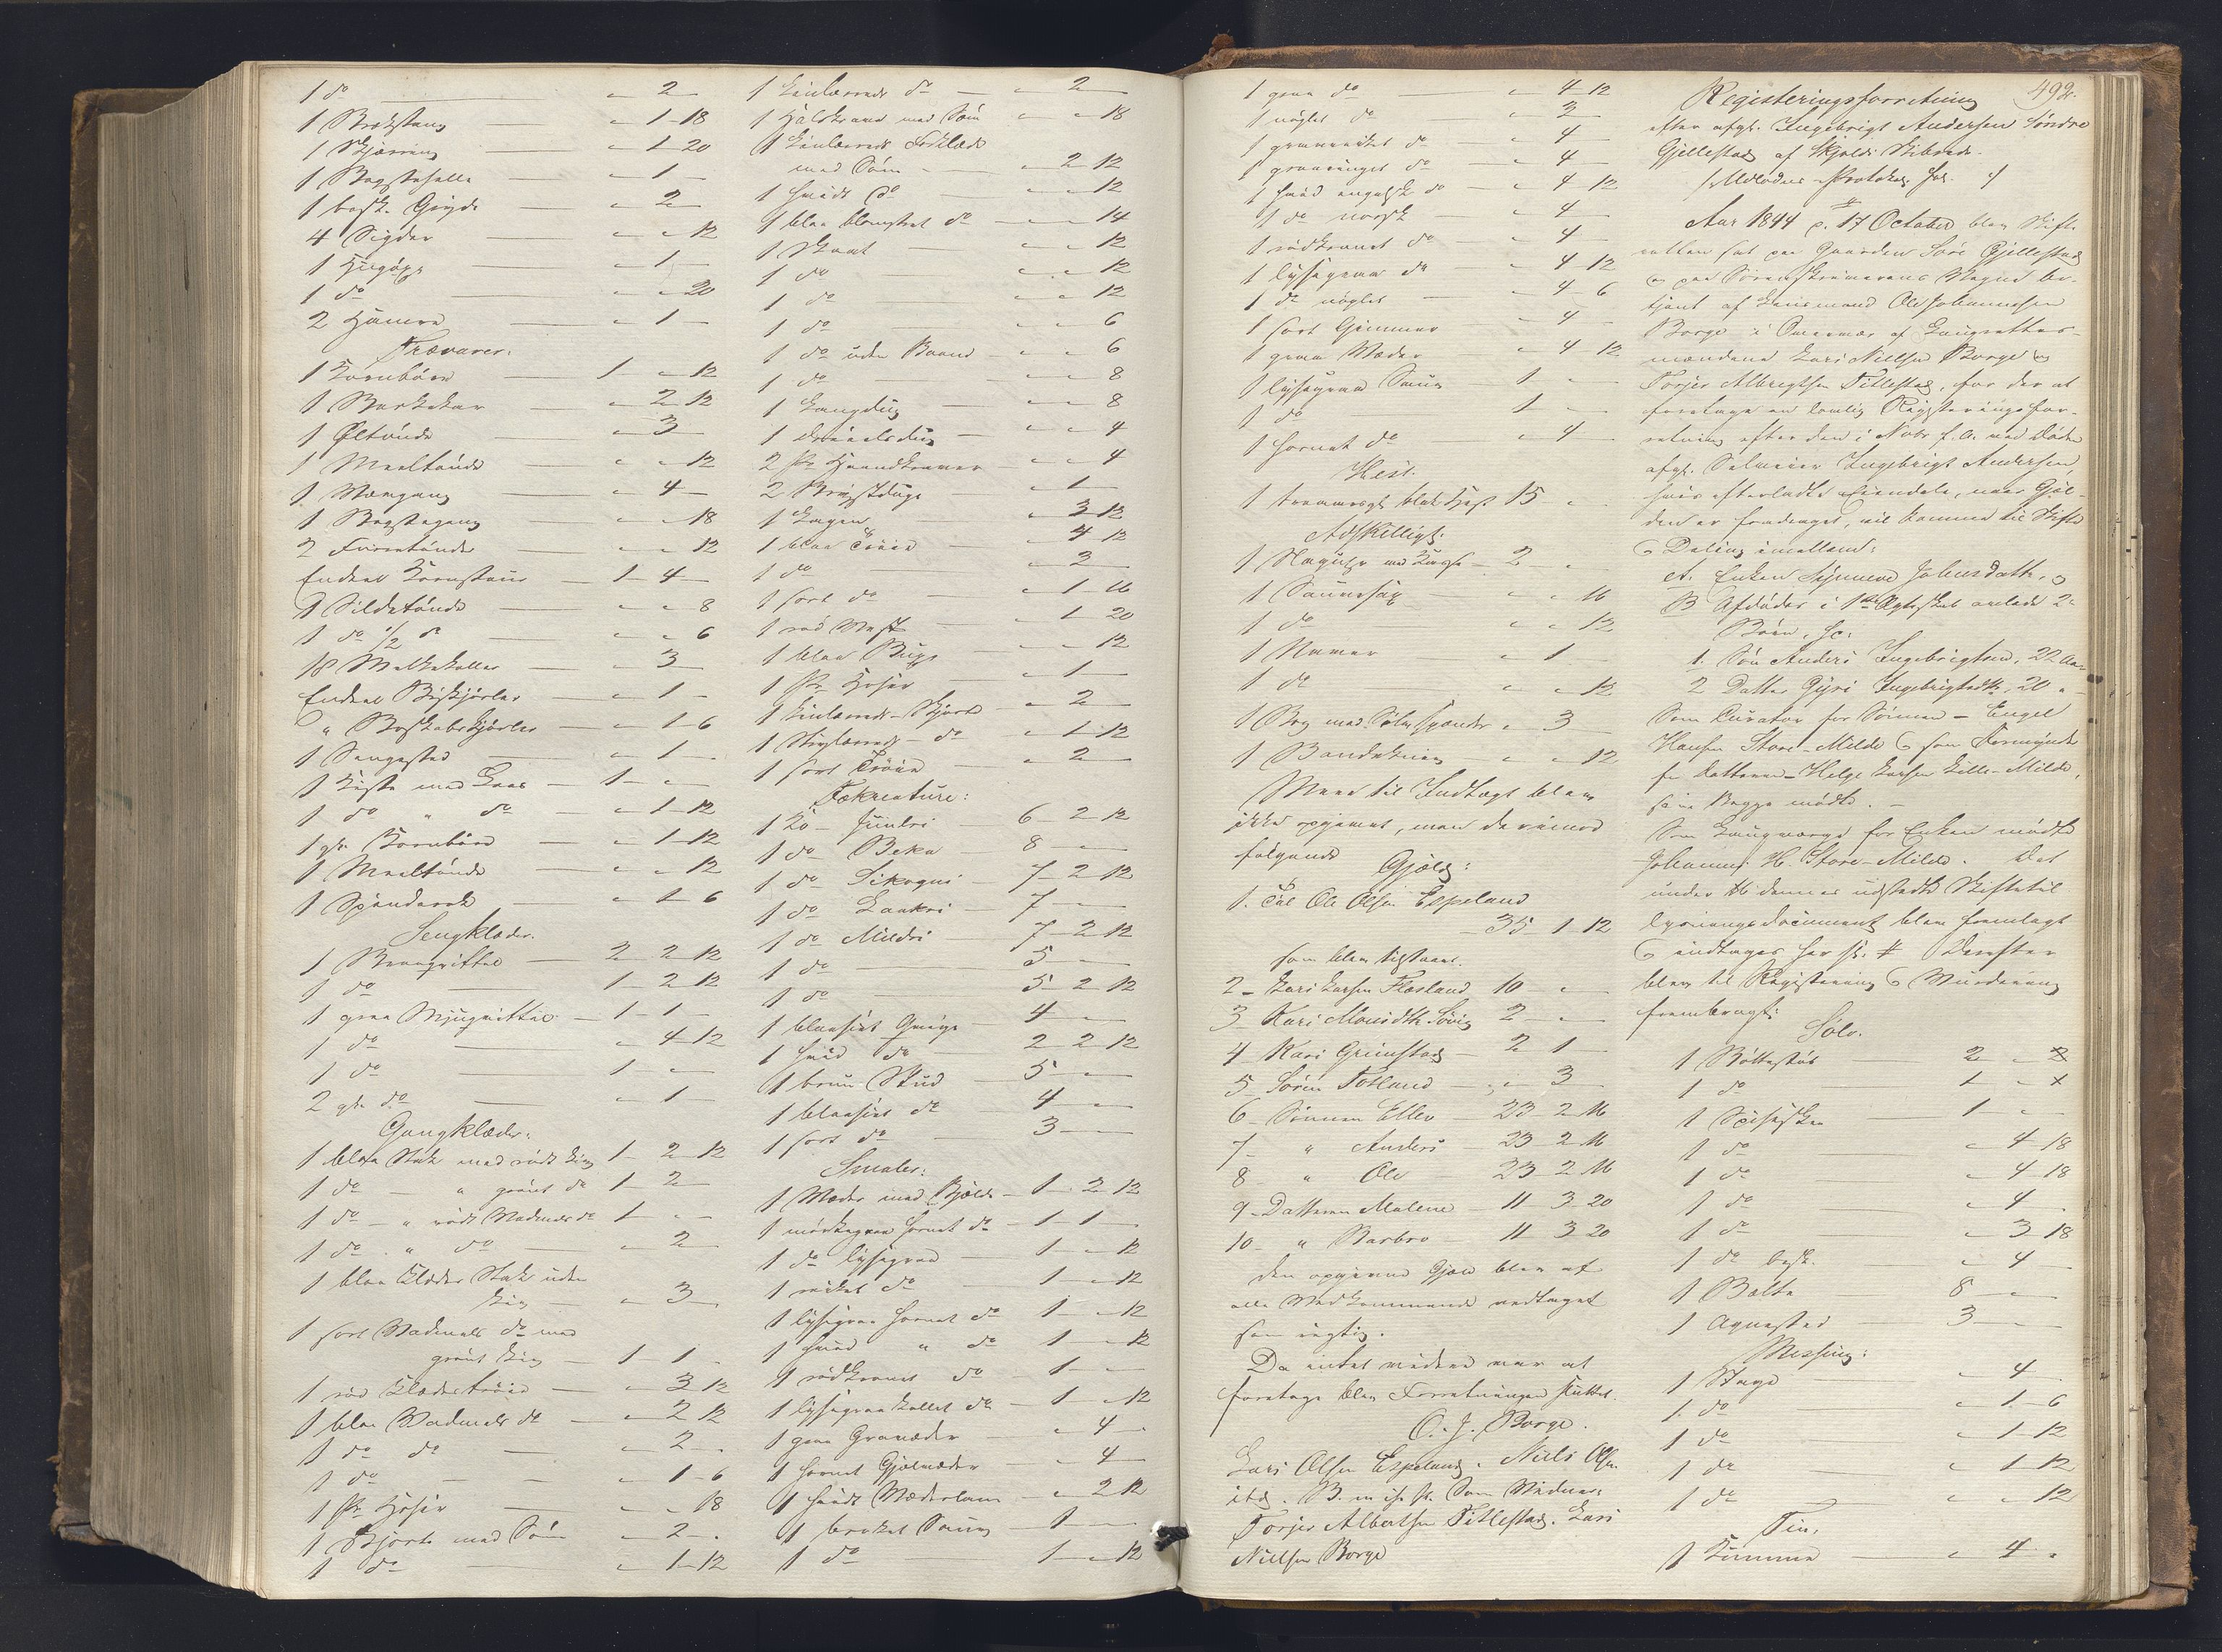 1 do — " 2 —
1 Brækstang — " 1 18
1 Skjæring — " 1 20
1 — " 1 —
1 besk. Gryde — " 2 —
4 Sigder — " " 12
1 — " 1 —
1 do — " " 20
2 Hamre — " 1 —
Trævarer:
1 Kornbøre 1 " 12
1 Barkekar — " 2 12
1 Øltønde — " 3 —
1 Meeltønde — " " 12
1 Vævgang — " 4 —
1 — " " 18
2 — " " 12
Endeel Kornstaur — 1 4 —
1 Sildetønde — " " 8
1 do 1/2 do — " " 6
18 Melkekoller — " 3 —
Endeel — " 1 —
" Boskabskjørler — " 1 6
1 Sengested — " 1 —
1 Kiste med Laas — 1 " —
1 do " do — " 1 12
1 gl. Kornbøre — " 1 12
1 Meeltønde — " " 12
1 — " 1 6
Sengklæder.
1 — 2 2 12
1 do — 1 2 12
1 graa — 1 1 —
1 do — " 4 12
1 do — 1 " —
2 gle do — " 1 —
Gangklæder:
1 blaa Stak med rødt Liv 1 2 12
1 do — " grønt do 1 2 —
1 do — " rødt Vadmels do 1 " —
1 do " do — " 2 —
1 blaa Klædes Stak uden
Liv — " 3 —
1 sort Vadmels do med
grønt Liv — 1 1 —
1 rød Klædestrøie — " 3 12
1 blaa Vadmels do — " 2 12
1 do do — " 2 —
1 do — " 1 6
1 Pr. Hoser — " " 18
1 Skjorte med Søm — " 2 —
1 do — " 1 12
1 Linlærreds do — " 2 —
1 Halskrave med Søm " " 18
1 Linlærreds Forklæde
med Søm — " 2 12
1 hvidt do — " " 12
1 blaa blomstret do — " " 14
1 Skaut — " " 12
1 do — " " 12
1 do — " " 12
1 do — " " 6
1 do uden Baand — " " 6
1 do — " " 8
1 Langdug — " " 8
1 — " " 4
2 Pr. Haandkraver — " " 4
2 Brystduge — " 1 —
1 Lagen — " 3 12
1 blaa Trøie — " 4 12
1 do — " 3 —
1 sort do — " 1 16
1 rød Vest — " 1 20
1 blaa Buxe — " " 12
1 Pr. Hoser — " 1 —
1 Linlærreds Skjorte — " 2 —
1 Strylærreds do — " 1 12
1 sort Trøie — " 2 —
Fækreature:
1 Ko — 6 2 12
1 do Beka — 8 " —
1 do Sikagni — 7 2 12
1 do — 7 " —
1 do Mildri — 7 2 12
1 do — 5 " —
1 do — 5 2 12
1 blaasiet Qvige — 4 " —
1 hvid do — 2 2 12
1 bruun Stud — 5 " —
1 blaasiet do — 4 " —
1 sort do — 3 —
Smaler:
1 Væder med Bjelde — 1 2 12
1 mørkegraa hornet do — 1 1 —
1 do lysegraa — 1 " 12
1 do — 1 " 12
1 lysegraa hornet do 1 " 12
1 hvid " do 1 " 12
1 rødkronet do 1 " —
1 lysegraa kollet do 1 " 12
1 graa — " 4 —
1 hornet — " 4 —
1 hvidt Væderlam — " 2 12
1 broket Sauu 1 " —
1 do 1 " 12
1 graa do — " 4 12
1 do — " 3 —
1 do — " 4 —
1 do — " 4 —
1 hvid engelsk do " 4 12
1 do norsk — " 4 —
1 rødkronet do — " 4 —
1 lysegraa do — " 4 12
1 do — " 4 6
1 sort Gimmer — " 4 —
1 graa Væder — " 4 12
1 lysegraa Sauu 1 " —
1 do 1 " —
1 hornet do — " 4 —
Hest.
1 blak Hest 15 " —
Adskilligt.
1 med Kasse 2 " —
1 Sauesax — " " 16
1 do — " " 12
1 Naver — " 1 —
1 do — " " 12
1 Bog med Sølvspænder " 3 —
1 — " " 12
Meer til Indtægt blev
ikke opgivet, men derimod
følgende
Gjæld:
1. Til Ole Olsen Espeland
— 35 1 12
som blev tilstaaet.
2 — Lars Larsen Flæsland 10 " —
3 Kari Monsdtr. 2 " —
4 Kari Grimstad — 2 1 —
5 Søren Totland — " 3 —
6 Sønnen Ellev — 23 2 16
7 " Anders — 23 2 16
8 " Ole — 23 2 16
9 Datteren Malene — 11 3 20
10 " Barbro — 11 3 20
Den opgivne Gjæld blev af
alle Vedkommende vedtaget
som rigtig.
Da intet videre var at
foretage blev Forretningen sluttet.
O. J. Borge.
Lars Olsen Espeland. Niels Olsen
ibd. Som Vidner:
Torger Albertsen Titlestad. Lars
Nielsen Borge
492.
Registeringsforretning
efter afgl. Ingebrigt Andersen Søndre
Gjellestad af Skjolds Skibrede.
(: Protokol fol. :)
Aar 1844 d. 17 October blev Skifte
retten sat paa Gaarden Søre Gjellestad
og paa Sorenskriverens Vegne be-
tjent af Lensmand Ole Johannesen
Borge i Overvær af Laugrettes-
mændene Lars Nielsen Borge og
Torger Albrigtsen Titlestad, for der at
foretage en lovlig Registeringsfor-
retning efter den i Novbr. f. A. ved Døden
afgl. Selveier Ingebrigt Andersen,
hvis efterladte Eiendele, naar Gjæl-
den er fradraget, vil komme til Skifte
og Deling imellem:
A. Enken Synneve Johnsdatter, og
B Afdødes i 1ste Ægteskab avlede 2de
Børn, sc:
1. Søn Anders Ingebrigtsen, 22 Aar
2 Datter Gyri Ingebrigtsdtr, 20 " —
Som Curator for Sønnen — Engel
Hansen Store-Milde og som Formynder
for Datteren — Helge Larsen Lille-Milde,
som Begge mødte. —
Som Laugværge for Enken mødte
Johannes H. Store-Milde. Det
under dennes udstedte Skiftetil
lysningsdocument blev fremlagt
og indtages her sk. # Derefter
blev til Registering og Vurdering
frembragt:
Sølv.
1 2 "
1 do 1 "
1 Spiseskee 1 " —
1 do " 4 18
1 do " 4 18
1 do " 4 —
1 do " 3 18
1 do besk. " 4 —
1 Belte 8 " —
1 Agnested 3 " —
Messing:
1 Stage " 4 —
1 do " 1 6
1 do " 1 12
1 do " 1 12
1 do " " 12
Tin.
1 Kumme — " 4 "